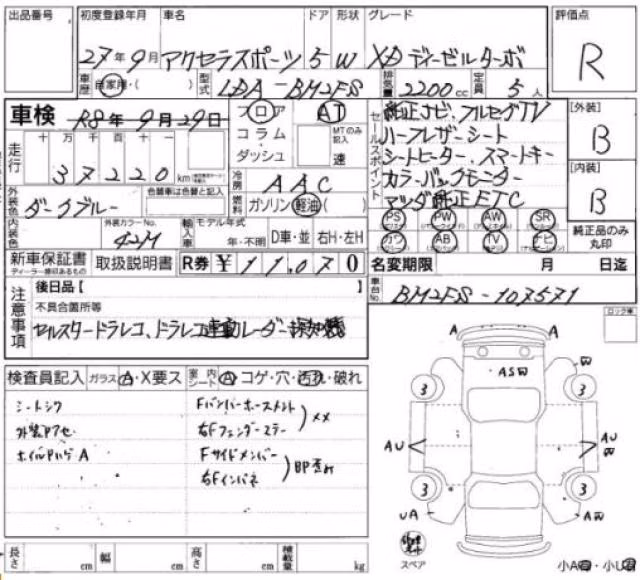 出品番号 初度登録年月 車名 ドア 形状 グレード 評価点
27年9月 アクセラスポーツ 5 W XD ディーゼルターボ R
車歴 自家用・( ) 型式 LDA-BM2FS 排気量 2200cc 定員 5人
車検 R8年9月29日 フロア AT
コラム MTのみ記入
ダッシュ 速
セールスポイント
純正ナビ、フルセグTV
ハーフレザーシート
シートヒーター、スマートキー
カラーバックモニター
マツダ純正ETC
[外装]
B
[内装]
B
走行 十万千百十一
37220km
冷房 AAC
外装色 ダークブルー 色替車は色替と記入
燃料 ガソリン 軽油 ( )
PS PW AW SR
カワ AB TV ナビ
純正品のみ丸印
内装色 外装カラーNo. 42M
輸入車 モデル年式 年・不明 D車・並 右H・左H
新車保証書 ディーラー捺印あるもの 取扱説明書 R券 ¥11,070
名変期限 月 日迄
注意事項 後日品【 】
車台No. BM2FS-107571
不具合箇所等
セルスタードラレコ、ドラレコ連動レーダー探知機
ロック車
検査員記入 ガラス A・X要ス 室内シート A コゲ・穴・汚れ・破れ
シートシワ
外装Pアセ
ホイルPハゲ.A
Fバンパーホースメント
右Fフェンダーステー
XX
Fサイドメンバー
右Fインパネ
BP歪み
A A
ASW
W
3 3
AU AU
W
3 3
UA AW
スペア
小A 小U
長さ cm 幅 cm 高さ cm 積載量 kg